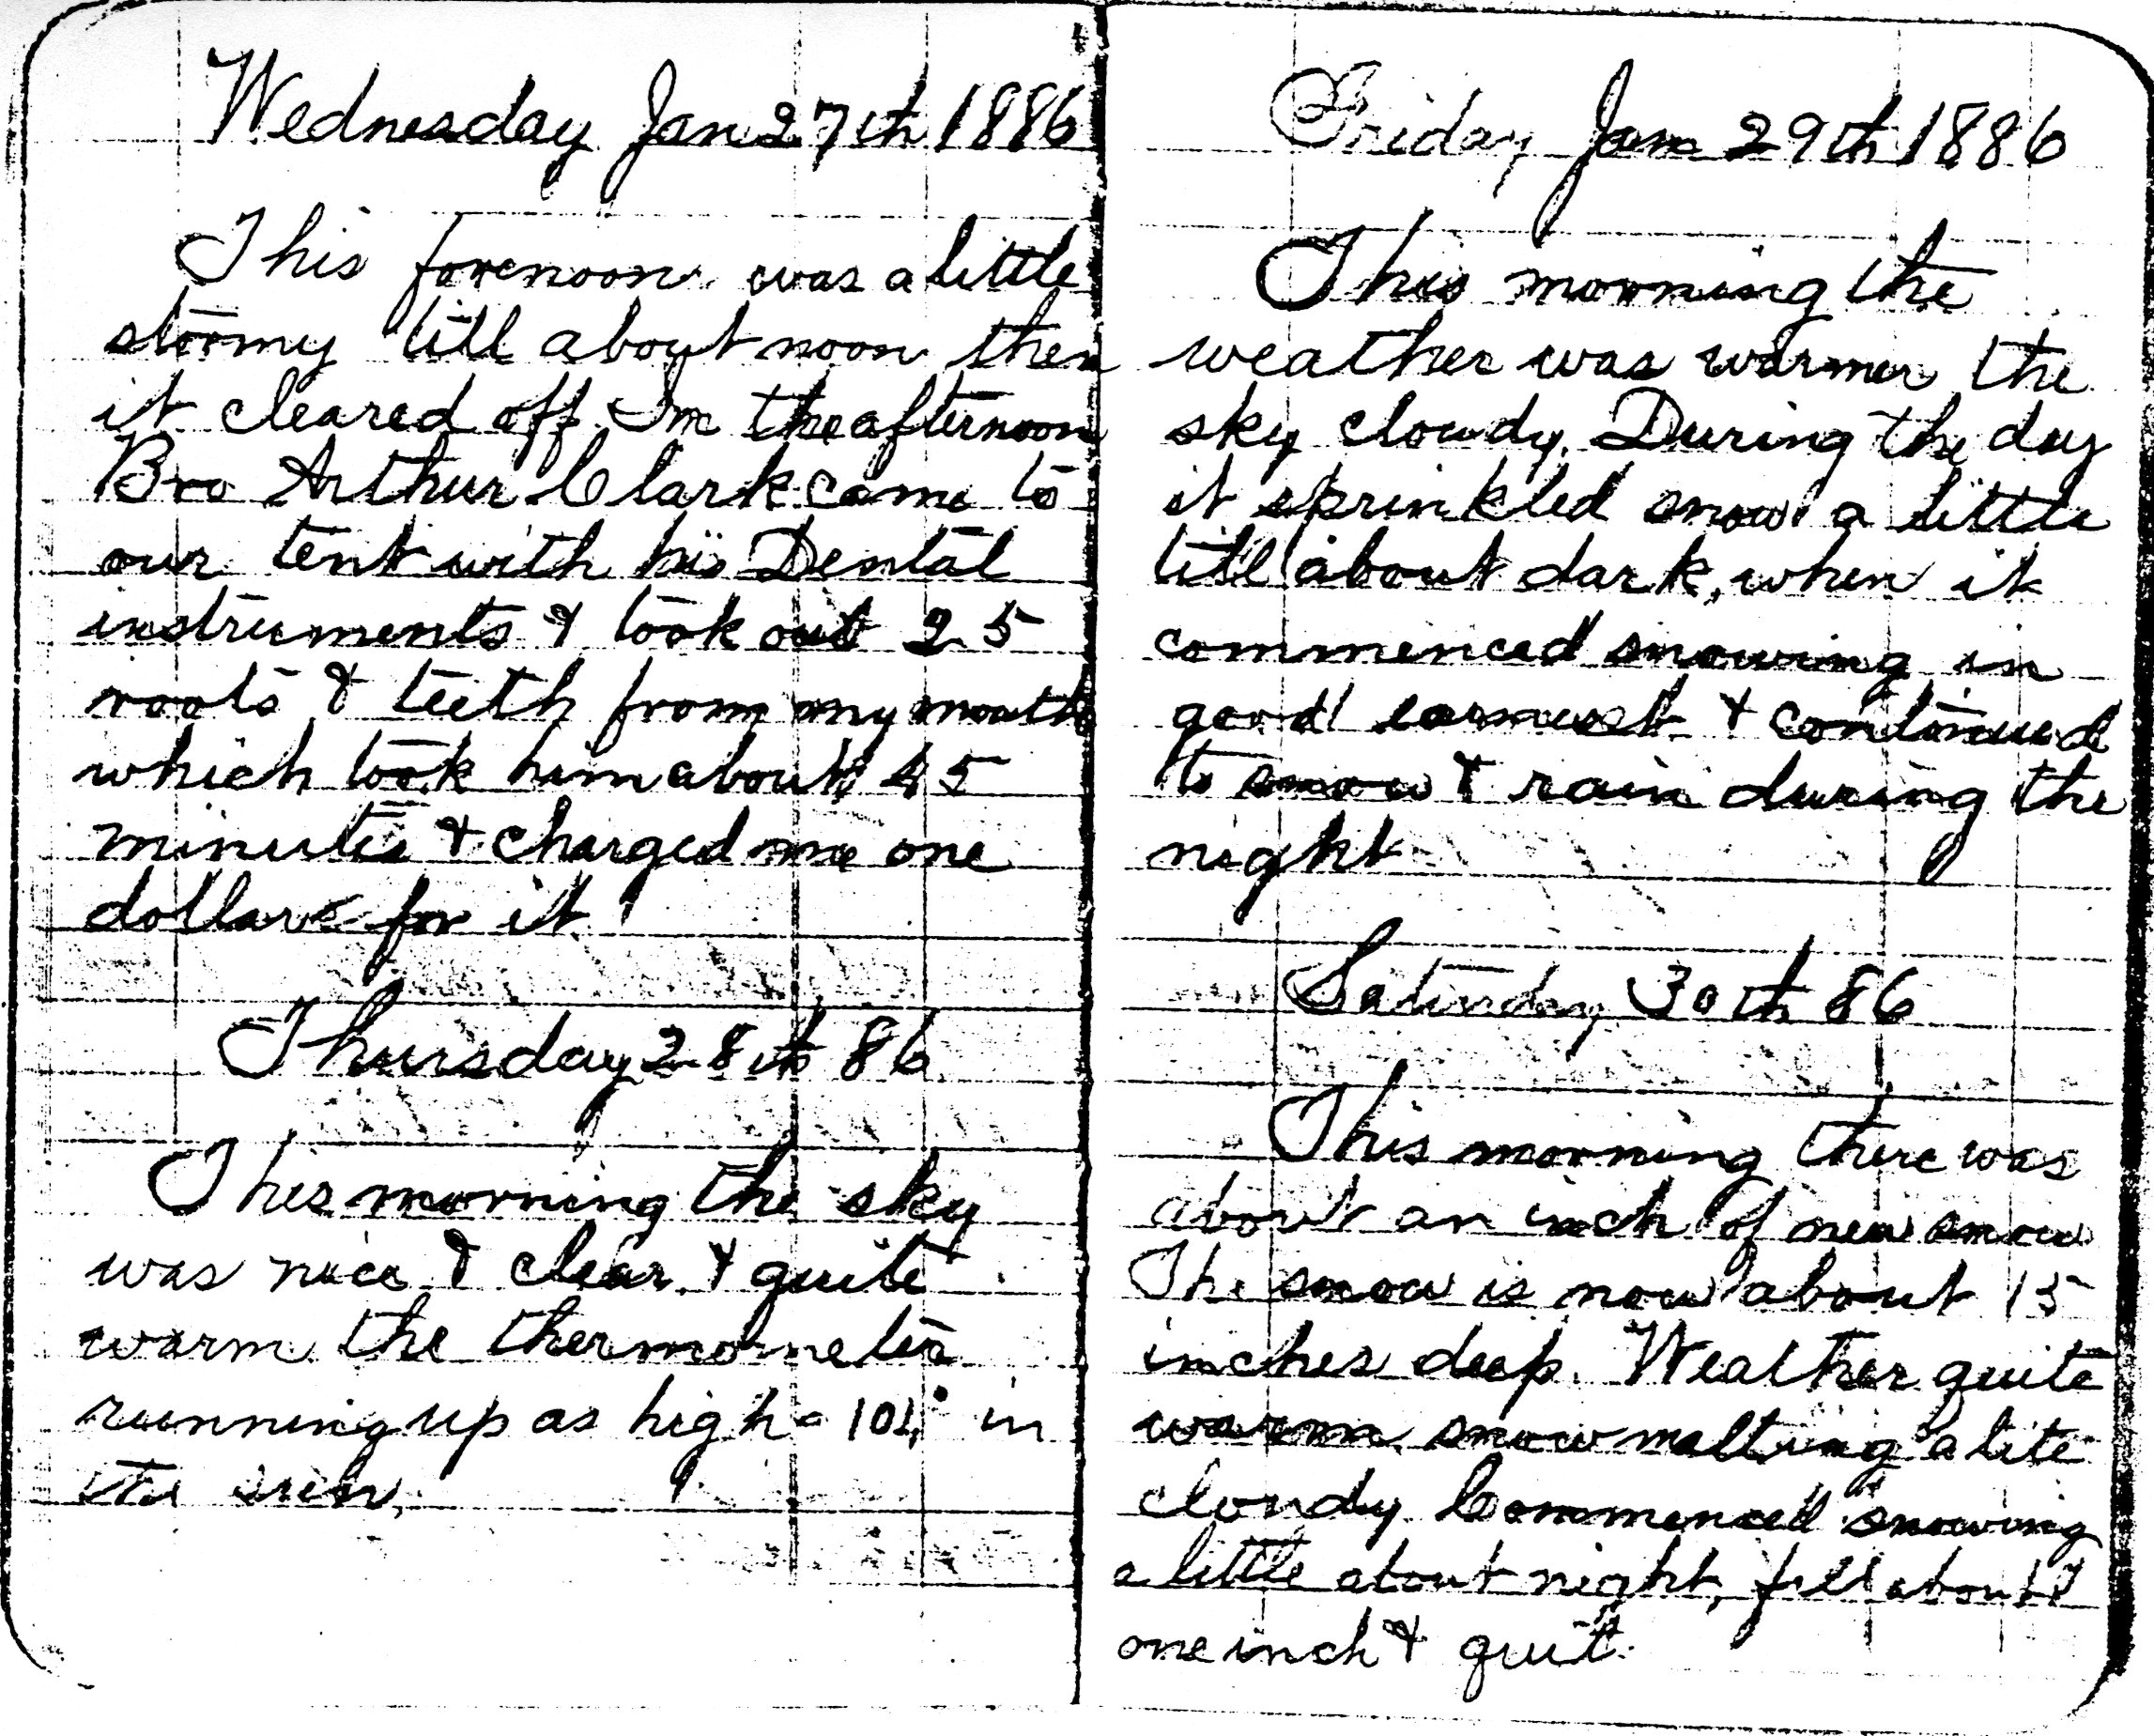 Wednesday Jan 27th 1886
This forenoon was a little
stormy till about noon then
it cleared off. In the afternoon
Bro Arthur Clark came to
our tent with his Dental
instruments & took out 25
roots & teeth from my mouth
which took him about 45
minutes & charged me one
dollar for it
Thursday 28th 86
This morning the sky
was nice & clear & quite
warm the thermometer
running up as high as 101° in
the sun.
Friday Jan 29th 1886
This morning the
weather was warmer the
sky cloudy. During the day
it sprinkled snow a little
till about dark, when it
commenced snowing in
good earnest & continued
to snow & rain during the
night
Saturday 30th 86
This morning there was
about an inch of new snow
The snow is now about 15
inches deep. Weather quite
warm snow melting a lite
cloudy. Commenced snowing
a little about night, fell about
one inch & quit.